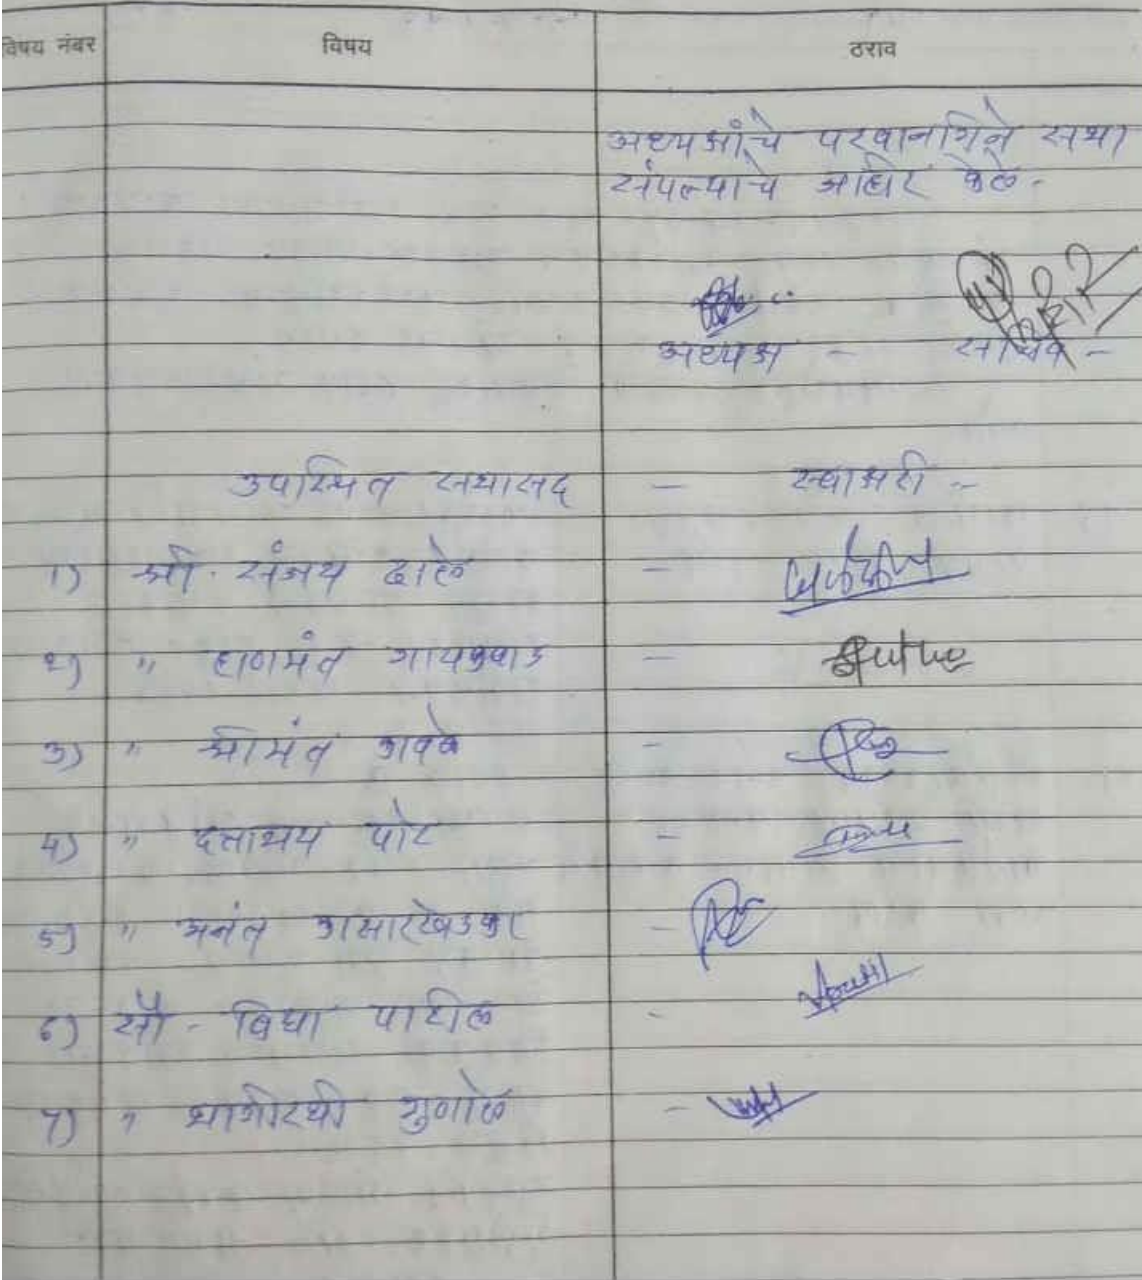 विषय नंबर विषय ठराव
अध्यक्षांचे परवानगिने सभा
संपल्याचे जाहिर केले -
अध्यक्ष - सचिव -
उपस्थित सभासद - स्वाक्षरी -
1) श्री. संजय ढोले -
2) " हाणमंत गायकवाड -
3) " श्रीमंत कावळे -
4) " दत्तात्रय पोट -
5) " अनंत कासारखेडकर -
6) सौ - विद्या पाटील -
7) " भागीरथी गुणाले -